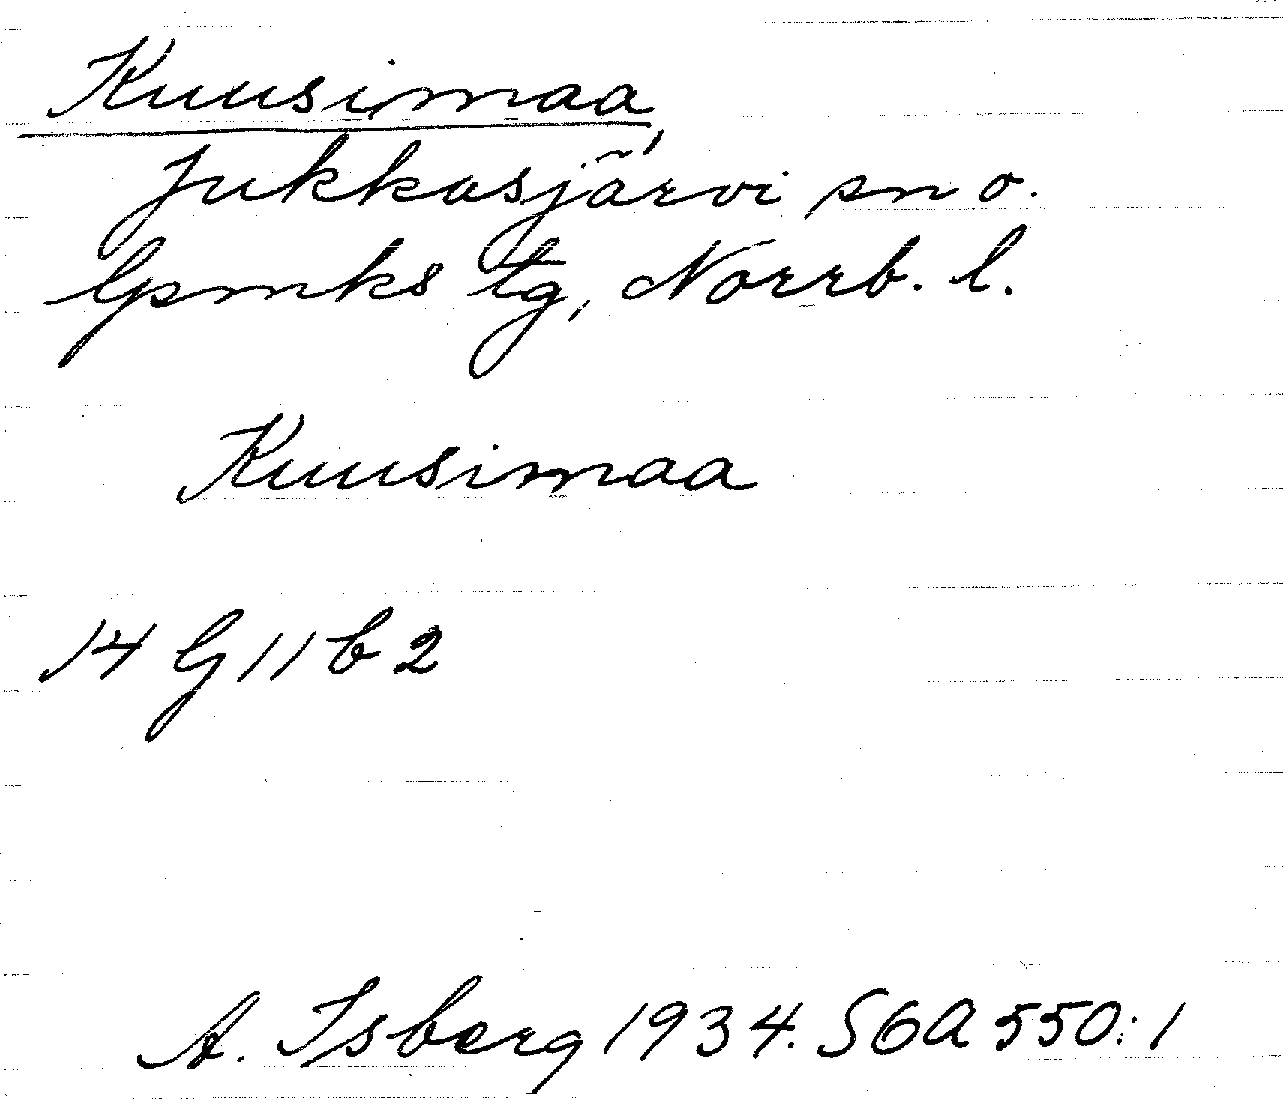 Kuusimaa,
Jukkasjärvi sn o.
lpmks tg, Norrb. l.
Kuusimaa
14 G 11 b 2
A. Isberg 1934. SOA 550:1